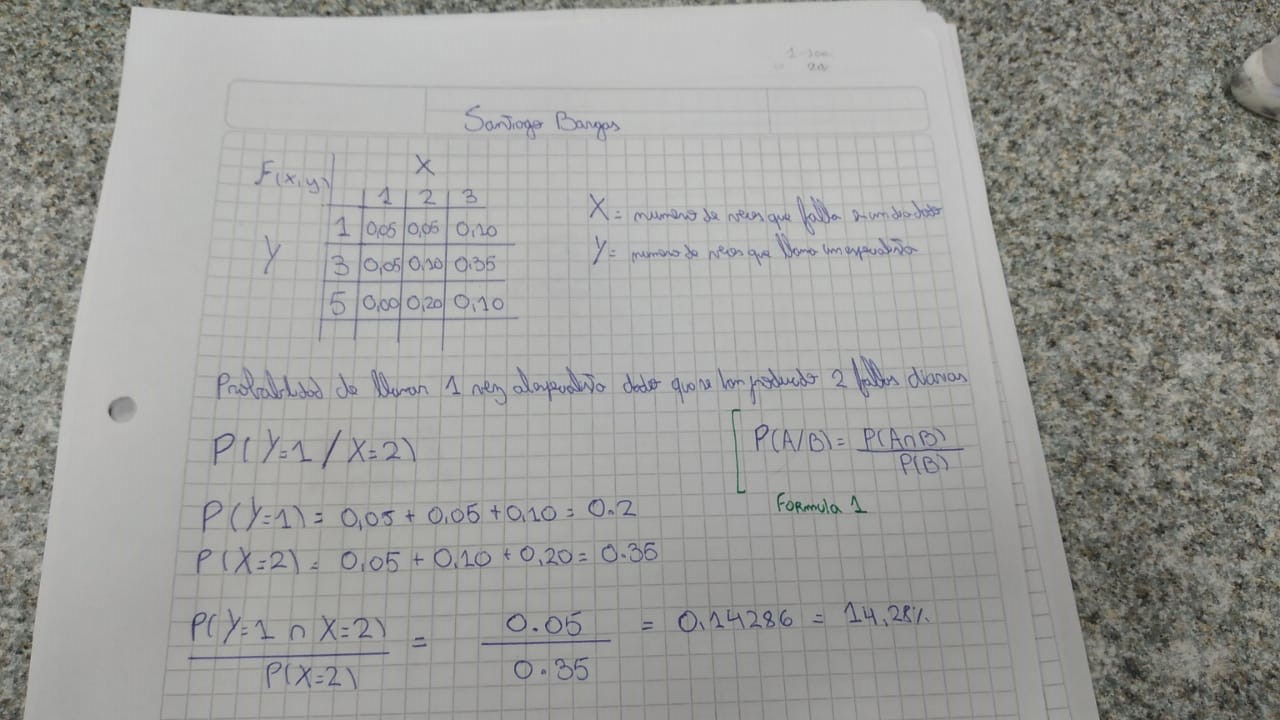 Santiago Bargas
F(x,y) X
1 2 3
1 0,05 0,05 0,10
Y 3 0,05 0,10 0.35
5 0,00 0,20 0,10
X = numero de veces que falla
Y = numero de veces que llama
Probabilidad de llamar 1 vez dado que se han producido 2 fallos diarias
P(Y=1 / X=2)
P(A/B) = P(A∩B) / P(B)
Formula 1
P(Y=1) = 0,05 + 0,05 + 0,10 = 0.2
P(X=2) = 0,05 + 0,10 + 0,20 = 0.35
P(Y=1 ∩ X=2) / P(X=2) = 0.05 / 0.35 = 0,14286 = 14,28%